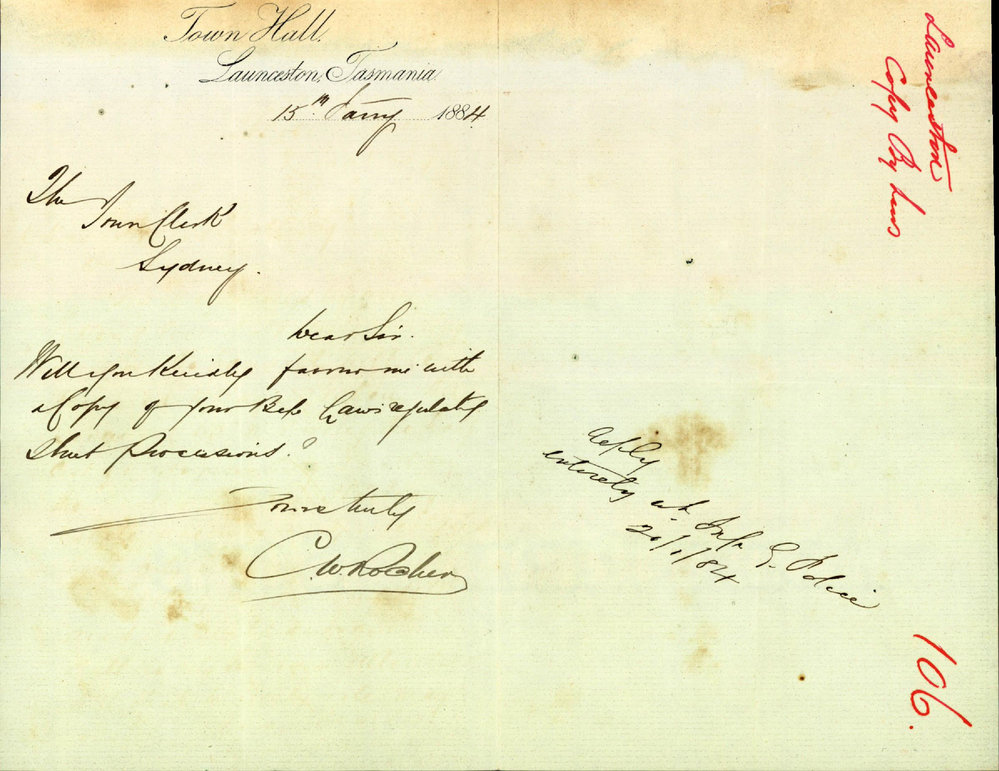 Town Hall,
Launceston, Tasmania
15th Jany 1884
The
Town Clerk
Sydney.
Dear Sir.
Will you Kindly favour me with
a Copy of your Bye Laws regulating
Street Processions?
Yours truly
C. W. Rocher
Launceston
Copy By Laws
reply
entirely
Insp. G. Police
20/1/84
106.